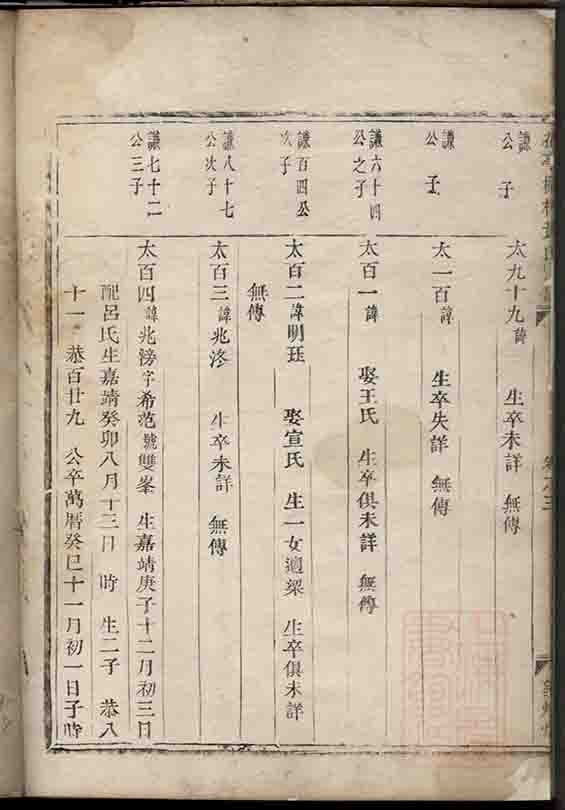 謙 公 子
太九十九諱 生卒未詳 無傳
謙 公 子
太一百諱 生卒失詳 無傳
謙六十四公之子
太百一諱 娶王氏 生卒俱未詳 無傳
謙百四公次子
太百二諱明玨 娶宣氏 生一女適梁 生卒俱未詳
無傳
謙八十七公次子
太百三諱兆 生卒未詳 無傳
謙七十二公三子
太百四諱兆滂字希范號雙峯 生嘉靖庚子十二月初三日
配呂氏生嘉靖癸卯八月十三日 時 生二子 恭八
十一 恭百廿九 公卒萬曆癸巳十一月初一日子時